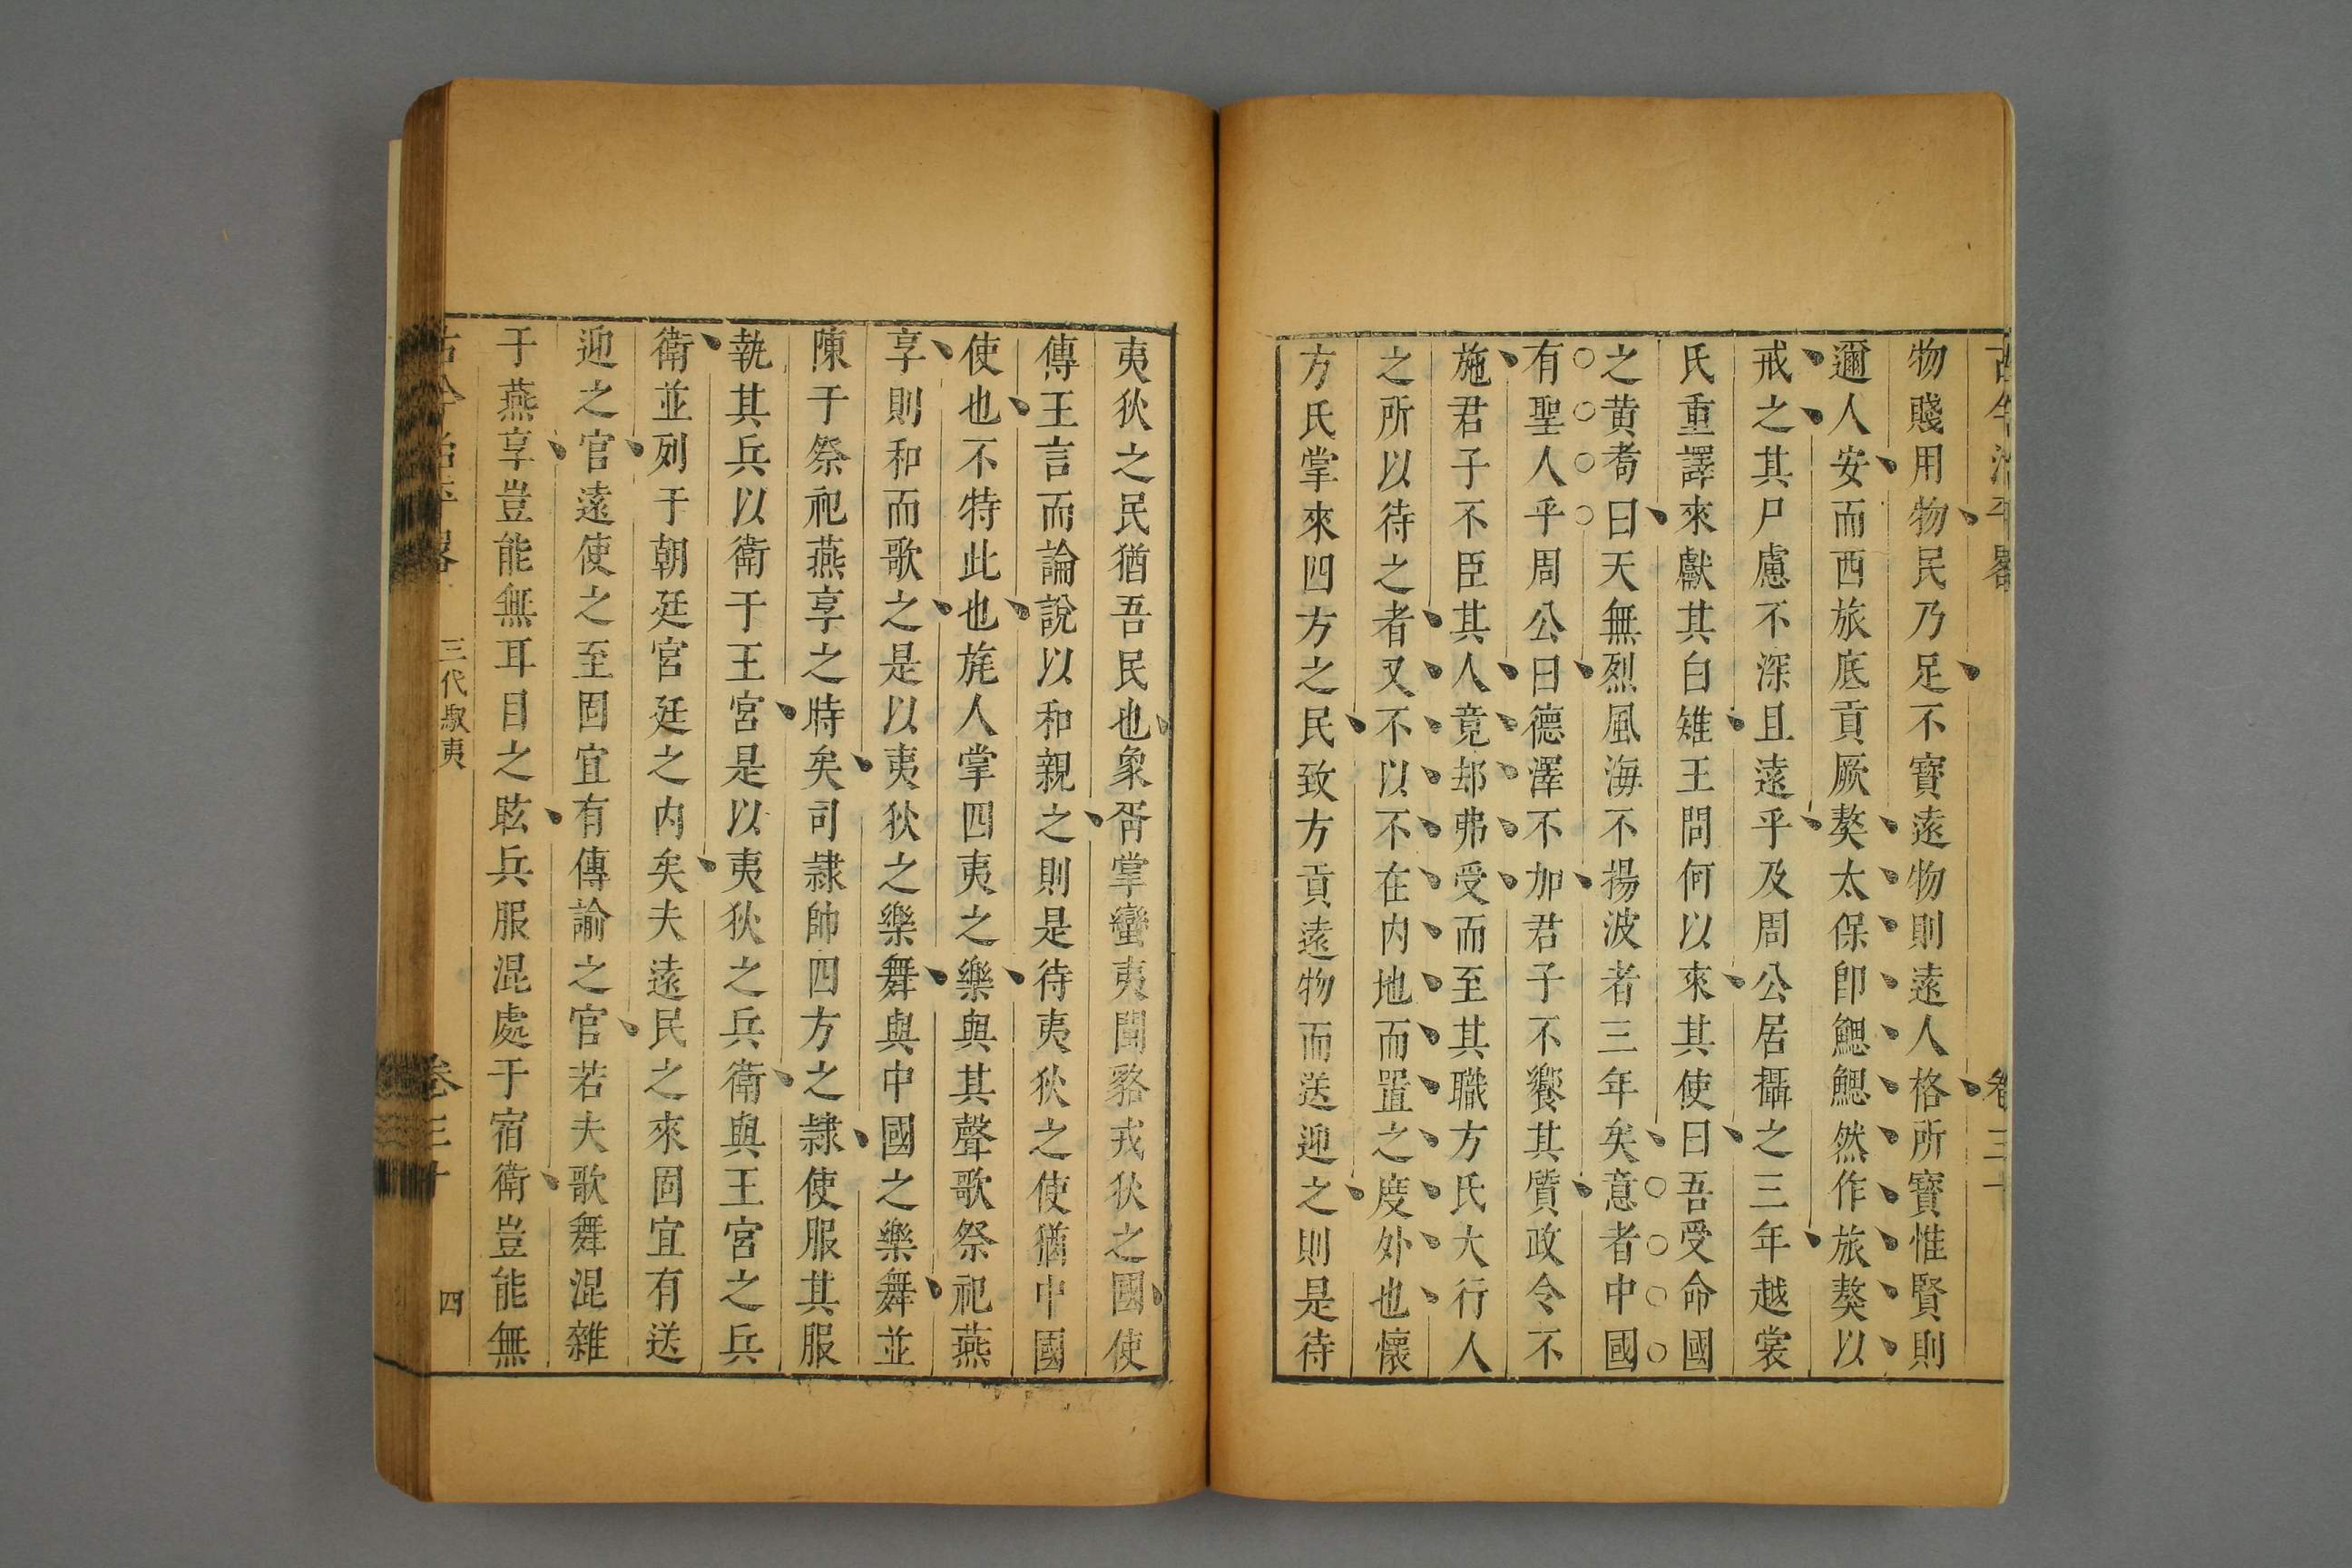 古今治平畧 卷三十
物賤用物民乃足不寶遠物則遠人格所寶惟賢則
邇人安而西旅底貢厥獒太保卽鰓鰓然作旅獒以
戒之其尸慮不深且遠乎及周公居攝之三年越裳
氏重譯來獻其白雉王問何以來其使曰吾受命國
之黄耈曰天無烈風海不揚波者三年矣意者中國
有聖人乎周公曰德澤不加君子不饗其質政令不
施君子不臣其人竟却弗受而至其職方氏大行人
之所以待之者又不以不在内地而置之度外也懷
方氏掌來四方之民致方貢遠物而送迎之則是待
夷狄之民猶吾民也象胥掌蠻夷閩貉戎狄之國使
傳王言而論說以和親之則是待夷狄之使猶中國
使也不特此也旄人掌四夷之樂與其聲歌祭祀燕
享則和而歌之是以夷狄之樂舞與中國之樂舞並
陳于祭祀燕享之時矣司隷帥四方之隷使服其服
執其兵以衛于王宮是以夷狄之兵衛與王宮之兵
衛並列于朝廷宮廷之内矣夫遠民之來固宜有送
迎之官遠使之至固宜有傳諭之官若夫歌舞混雜
于燕享豈能無耳目之眩兵服混處于宿衛豈能無
古今治平畧 三代馭夷 卷三十 四